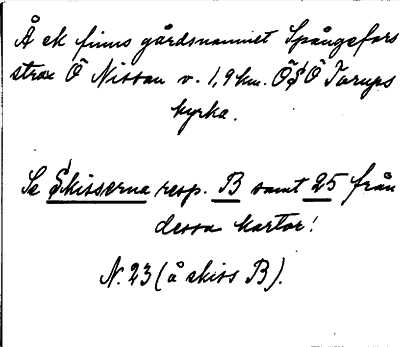 Å ek finns gårdsnamnet Spångefors
strax Ö Nissan v. 1,9 km. ÖSÖ Torups
kyrka.
Se Skisserna resp. B samt 25 från
dessa kartor!
N. 23 (å skiss B).